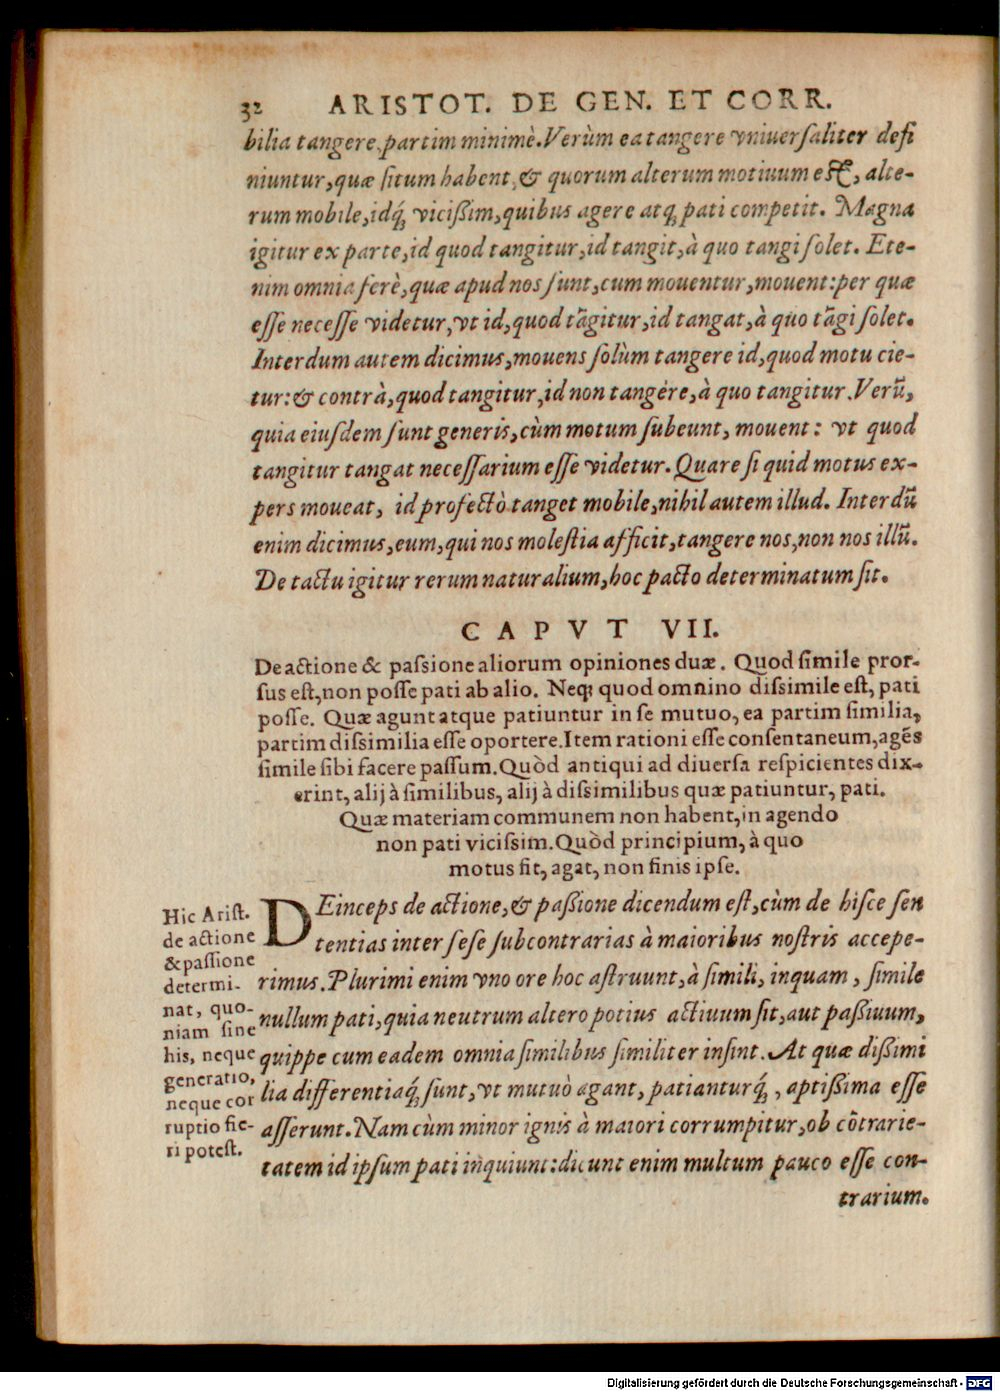 32 ARISTOT. DE GEN. ET CORR.
bilia tangere, partim minimè. Verùm ea tangere vniuerſaliter defi
niuntur, quæ ſitum habent, & quorum alterum motiuum eſt, alte-
rum mobile, idq́; viciſsim, quibus agere atq; pati competit. Magna
igitur ex parte, id quod tangitur, id tangit, à quo tangi ſolet. Ete-
nim omnia ferè, quæ apud nos ſunt, cum mouentur, mouent: per quæ
eſſe neceſſe videtur, vt id, quod tãgitur, id tangat, à quo tãgi ſolet.
Interdum autem dicimus, mouens ſolùm tangere id, quod motu cie-
tur: & contrà, quod tangitur, id non tangere, à quo tangitur. Verũ,
quia eiuſdem ſunt generis, cùm motum ſubeunt, mouent: vt quod
tangitur tangat neceſſarium eſſe videtur. Quare ſi quid motus ex-
pers moueat, id profectò tanget mobile, nihil autem illud. Interdũ
enim dicimus, eum, qui nos moleſtia afficit, tangere nos, non nos illũ.
De tactu igitur rerum naturalium, hoc pacto determinatum ſit.
CAPVT VII.
De actione & paſsione aliorum opiniones duæ. Quod ſimile pror-
ſus eſt, non poſſe pati ab alio. Neq; quod omnino diſsimile eſt, pati
poſſe. Quæ agunt atque patiuntur in ſe mutuo, ea partim ſimilia,
partim diſsimilia eſſe oportere. Item rationi eſſe conſentaneum, agẽs
ſimile ſibi facere paſſum. Quòd antiqui ad diuerſa reſpicientes dix-
erint, alij à ſimilibus, alij à diſsimilibus quæ patiuntur, pati.
Quæ materiam communem non habent, in agendo
non pati viciſsim. Quòd principium, à quo
motus fit, agat, non finis ipſe.
Hic Ariſt.
de actione
& paſſione
determi-
nat, quo-
niam ſine
his, neque
generatio,
neque cor
ruptio fie-
ri poteſt.
DEinceps de actione, & paſsione dicendum eſt, cùm de hiſce ſen
tentias inter ſeſe ſubcontrarias à maioribus noſtris accepe-
rimus. Plurimi enim vno ore hoc aſtruunt, à ſimili, inquam, ſimile
nullum pati, quia neutrum altero potius actiuum ſit, aut paſsiuum,
quippe cum eadem omnia ſimilibus ſimiliter inſint. At quæ diſsimi
lia differentiaq́; ſunt, vt mutuò agant, patianturq́;, aptiſsima eſſe
aſſerunt. Nam cùm minor ignis à maiori corrumpitur, ob cõtrarie-
tatem id ipſum pati inquiunt: dicunt enim multum pauco eſſe con-
trarium.
Digitalisierung gefördert durch die Deutsche Forschungsgemeinschaft - DFG